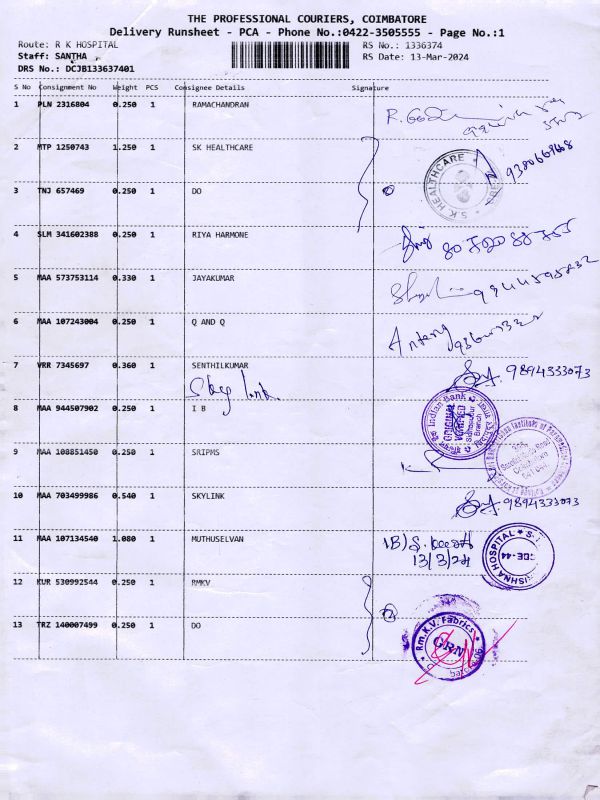 THE PROFESSIONAL COURIERS, COIMBATORE
Delivery Runsheet - PCA - Phone No.:0422-3505555 - Page No.:1
Route: R K HOSPITAL RS No.: 1336374
Staff: SANTHA RS Date: 13-Mar-2024
DRS No.: DCJB133637401
S No Consignment No Weight PCS Consignee Details Signature
1 PLN 2316804 0.250 1 RAMACHANDRAN
2 MTP 1250743 1.250 1 SK HEALTHCARE 9380669668
S K HEALTHCARE
3 TNJ 657469 0.250 1 DO
4 SLM 341602388 0.250 1 RIYA HARMONE
5 MAA 573753114 0.330 1 JAYAKUMAR
6 MAA 107243004 0.250 1 Q AND Q
7 VRR 7345697 0.360 1 SENTHILKUMAR 9894333073
8 MAA 944507902 0.250 1 I B
Indian Bank
ORIGINAL VERIFIED
Branch
9 MAA 108851450 0.250 1 SRIPMS
Coimbatore
10 MAA 703499986 0.540 1 SKYLINK 9894333073
11 MAA 107134540 1.080 1 MUTHUSELVAN IB)
13/3/24
HOSPITAL
CBE-44
12 KUR 530992544 0.250 1 RMKV
13 TRZ 140007499 0.250 1 DO
Rm.K.V. Fabrics
GRN